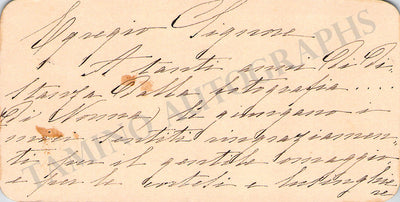 Egregio Signore
A tanti anni di di-
stanza dalla fotografia ....
di Norma, le giungano i
miei sentiti ringraziamen-
ti per il gentile omaggio
e per le cortesi e lusinghie
re
TAMINO AUTOGRAPHS